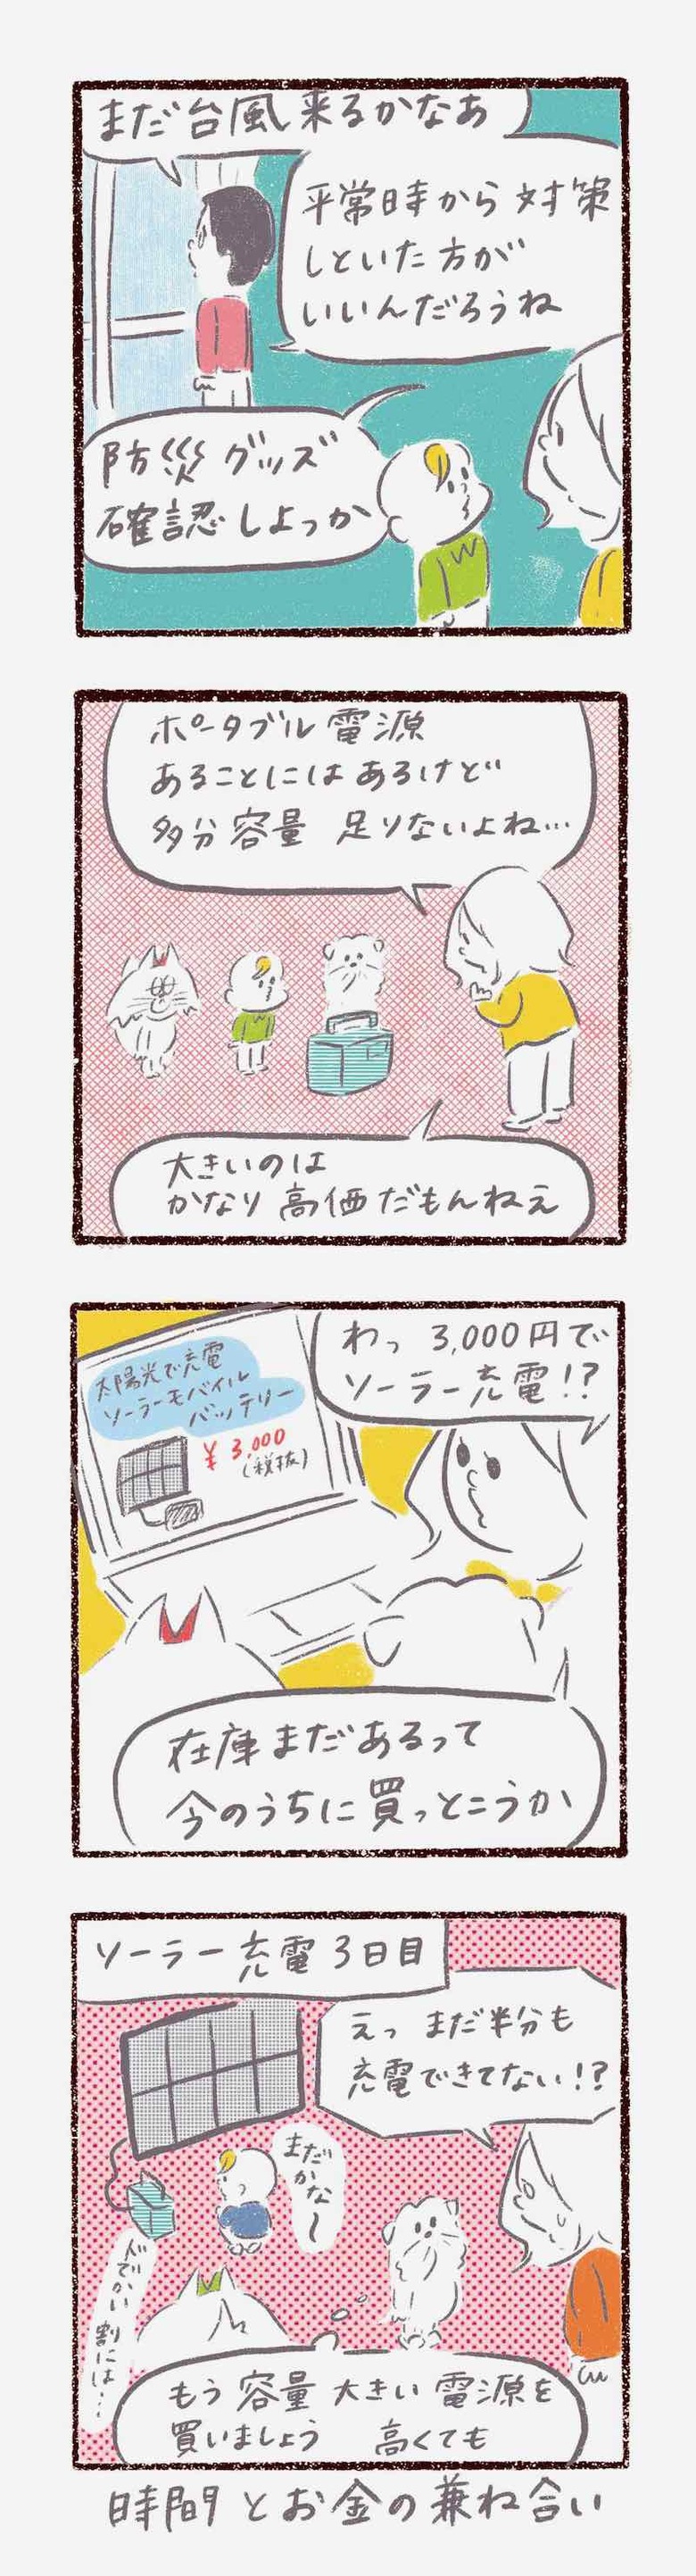 まだ台風来るかなあ
平常時から対策
しといた方が
いいんだろうね
防災グッズ
確認しよっか
ポータブル電源
あることにはあるけど
多分容量足りないよね…
大きいのは
かなり高価だもんねえ
わっ 3,000円で
ソーラー充電!?
太陽光で充電
ソーラーモバイル
バッテリー
¥3,000
(税抜)
在庫まだあるって
今のうちに買っとこうか
ソーラー充電3日目
えっ まだ半分も
充電できてない!?
まだ
かな〜
ドでかい割には…
もう容量大きい電源を
買いましょう 高くても
時間とお金の兼ね合い